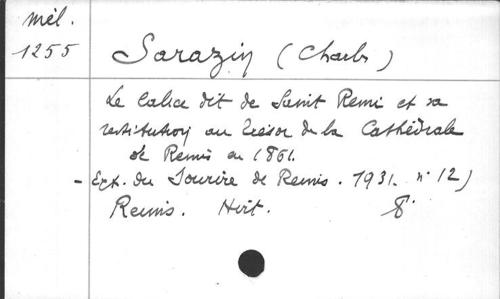 Mél.
1255
Sarazin (Charles)
Le Calice dit de Saint Remi et sa
restitution au trésor de la Cathédrale
de Reims en 1861.
- Ext. du Sourire de Reims. 1931. n° 12)
Reims. Hirt. 8°